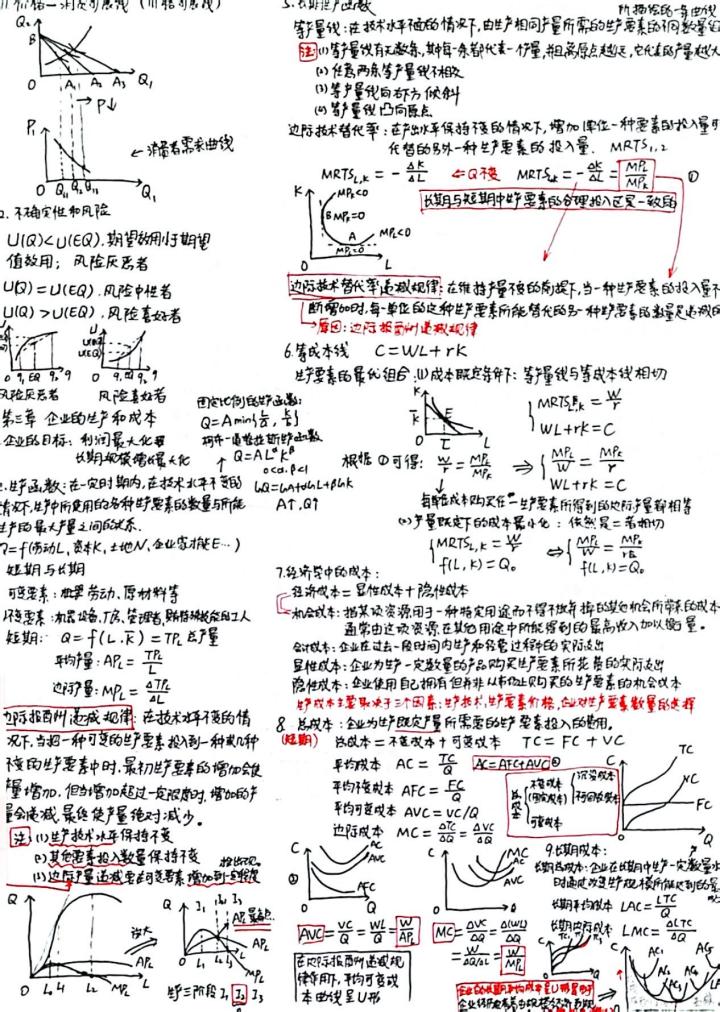 Q₂
B
O A₁ A₂ A₃ Q₁
→P↓
P₁
←消费者需求曲线
O Q₁
2. 不确定性和风险
U(Q)<U(EQ).期望效用小于期望
值效用；风险厌恶者
U(Q)=U(EQ).风险中性者
U(Q)>U(EQ).风险喜好者
风险厌恶者 风险喜好者
第三章 企业的生产和成本
企业的目标：利润最大化
长期规模增长最大化
固定比例的生产函数：
柯布-道格拉斯生产函数
Q=ALᵅKᵝ
0<α,β<1
A↑,Q↑
2.生产函数：在一定时期内,在技术水平不变的
情况下,生产中所使用的各种生产要素的数量与所能
生产的最大产量之间的关系.
Q=f(劳动L,资本K,土地N,企业家才能E…)
短期与长期
可变要素：劳动、原材料等
短期：Q=f(L,K̄)=TPL 总产量
平均产量：APL=TPL/L
边际产量：MPL=ΔTPL/ΔL
边际报酬递减规律：在技术水平不变的情
况下,当把一种可变的生产要素投入到一种或几种
不变的生产要素中时,最初生产要素的增加会使
产量增加,但当增加超过一定限度时,增加的产
量会递减,最终使产量绝对减少。
注：(1)生产技术水平保持不变
(2)其他要素投入数量保持不变
Q
放大
APL
MPL
O L
生产三阶段 I₁ I₂ I₃
5.长期生产函数
等产量线：在技术水平不变的情况下,由生产相同产量所需的生产要素的不同数量组
注：(1)等产量线有无数条,其中每一条都代表一个产量,并且离原点越远,它代表的产量越大
(2)任意两条等产量线不相交
(3)等产量线向右下方倾斜
(4)等产量线凸向原点
边际技术替代率：在产出水平保持不变的情况下,增加1单位一种要素的投入量可
代替的另外一种生产要素的投入量. MRTS₁,₂
MRTS L,K = -ΔK/ΔL ⇐Q不变 MRTS LK = -ΔK/ΔL = MPL/MPK ①
长期与短期中生产要素的合理投入区是一致的
K
MPK<0
B MPK=0
A MPL<0
MPL=0
O L
边际技术替代率递减规律：在维持产量不变的前提下,当一种生产要素的投入量不
断增加时,每一单位的这种生产要素所能替代的另一种生产要素的数量是递减的
→原因：边际报酬递减规律
6.等成本线 C=WL+rK
生产要素的最优组合：(1)成本既定条件下：等产量线与等成本线相切
K
E
O L
MRTS L,K=W/r
WL+rK=C
根据①可得：W/r=MPL/MPK ⇒ MPL/W=MPK/r
WL+rK=C
每单位成本购买任一生产要素所得到的边际产量都相等
(2)产量既定下的成本最小化：依然是二者相切
MRTS L,K=W/r ⇔
f(L,K)=Q₀ f(L,K)=Q₀
7.经济学中的成本：
经济成本=显性成本+隐性成本
机会成本：指某项资源用于一种特定用途而不得不放弃掉的其他机会所带来的成本
通常由这项资源在其他用途中所能得到的最高收入加以衡量。
会计成本：企业在过去一段时间内生产和经营过程中的实际支出
显性成本：企业为生产一定数量的产品购买生产要素所花费的实际支出
隐性成本：企业使用自己拥有但并非从市场上购买的生产要素的机会成本
生产成本主要取决于三个因素：生产技术,生产要素价格,企业对生产要素数量的选择
8.总成本：企业为生产既定产量所需要的生产要素投入的费用。
(短期) 总成本=不变成本+可变成本 TC=FC+VC
平均成本 AC=TC/Q AC=AFC+AVC
平均不变成本 AFC=FC/Q
平均可变成本 AVC=VC/Q
边际成本 MC=ΔTC/ΔQ=ΔVC/ΔQ
总成本
不变成本
(固定成本)
沉没成本
可变成本
C
TC
VC
FC
O Q
C
AC
AVC
AFC
O Q
C
MC
AC
AVC
O Q
AVC=VC/Q=WL/Q=W/APL
在边际报酬递减规
律作用下,平均可变成
本曲线呈U形
MC=ΔVC/ΔQ=Δ(WL)/ΔQ
=W/(ΔQ/ΔL)=W/MPL
9.长期成本：
长期总成本：企业在长期中生产一定数量水
时通过改变生产规模所能达到的最
长期平均成本 LAC=LTC/Q
长期边际成本 LMC=ΔLTC/ΔQ